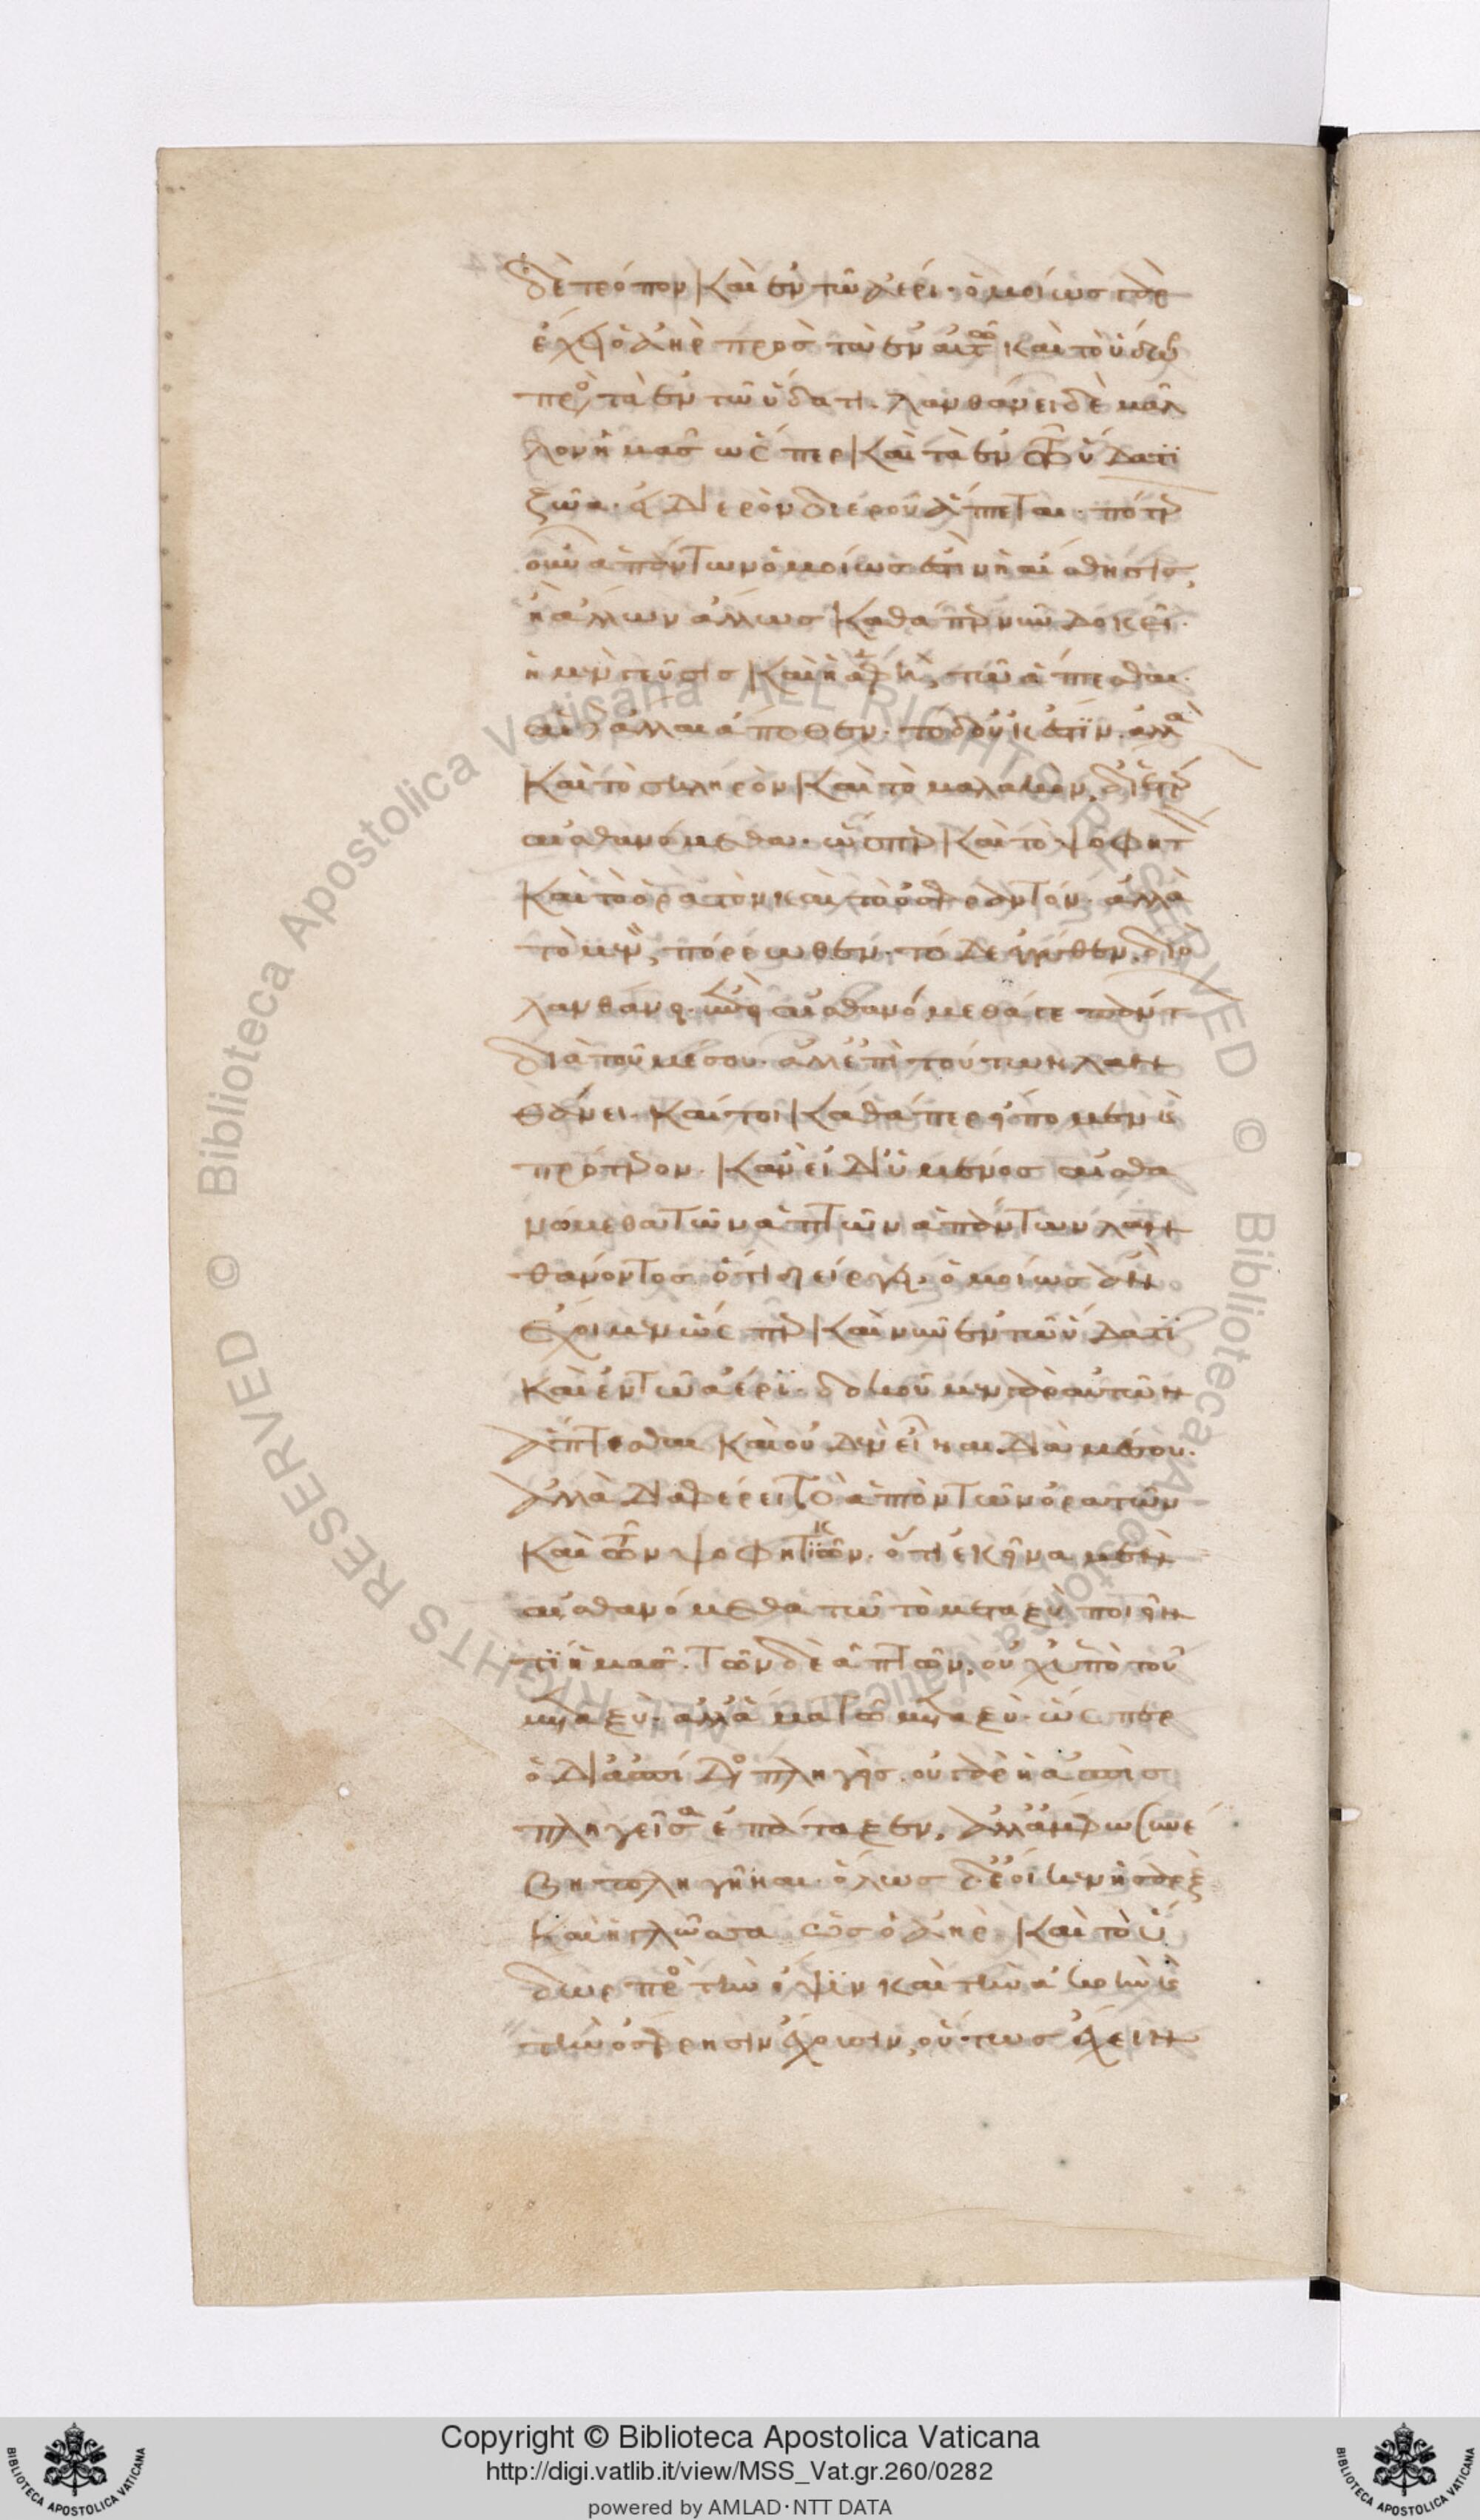 δὲ τρόπον καὶ ἐν τῶ ἀέρι· ὁμοίως γὰρ
ἔχει ὁ ἀὴρ πρὸς τὰ ἐν αὐτῶ καὶ τὸ ὕδωρ
πρὸς τὰ ἐν τῶ ὕδατι. λανθάνει δὲ μᾶλ
λον ἡμᾶς ὥσπερ καὶ τὰ ἐν τῶ ὕδατι
ζῶα· εἰ διερὸν διεροῦ ἅπτεται· πότερον
οὖν ἁπάντων ὁμοίως ἐστὶν ἡ αἴσθησις,
ἢ ἄλλων ἄλλως καθάπερ νῦν δοκεῖ·
ἡ μὲν γεῦσις καὶ ἡ ἁφὴ, τῶ ἅπτεσθαι·
αἱ δ' ἄλλαι ἄποθεν· τὸ δ' οὐκ ἔστιν. ἀλλὰ
καὶ τὸ σκληρὸν καὶ τὸ μαλακὸν, δι' ἑτέρων
αἰσθανόμεθα. ὥσπερ καὶ τὸ ψοφητ
καὶ τὸ ὁρατὸν καὶ τὸ ὀσφραντόν. ἀλλὰ
τὸ μὲν, πόρρωθεν· τὸ δ' ἐγγύθεν. διὸ
λανθάνει. ἐπεὶ αἰσθανόμεθά γε πάντ
διὰ τοῦ μέσου. ἀλλ' ἐπὶ τούτων λαν
θάνει. καίτοι καθάπερ εἴπομεν καὶ
πρότερον. κἂν εἰ δι' ὑμένος αἰσθα
νόμεθα τῶν ἁπτῶν ἁπάντων λαν
θάνοντος ὅτι διείργει. ὁμοίως ἂν
ἔχοιμεν ὥσπερ καὶ νῦν ἐν τῶ ὕδατι
καὶ ἐν τῶ ἀέρι. δοκοῦμεν γὰρ αὐτῶν
ἅπτεσθαι καὶ οὐδὲν εἶναι διὰ μέσου.
ἀλλὰ διαφέρει τὸ ἁπτὸν τῶν ὁρατῶν
καὶ τῶν ψοφητικῶν. ὅτι ἐκείνα μὲν
αἰσθανόμεθα τῶ τὸ μεταξὺ ποιεῖν
τι ἡμᾶς. τῶν δὲ ἁπτῶν, οὐχ ὑπὸ τοῦ
μεταξὺ· ἀλλὰ ἅμα τῶ μεταξὺ. ὥσπερ
ὁ δι' ἀσπίδος πληγείς. οὐ γὰρ ἡ ἀσπὶς
πληγεῖσα ἐπάταξεν, ἀλλ' ἅμ' ἄμφω συνέ
βη πληγῆναι. ὅλως δ' ἔοικεν ἡ σὰρξ
καὶ ἡ γλῶσσα ὡς ὁ ἀὴρ καὶ τὸ ὕ
δωρ πρὸς τὴν ὄψιν καὶ τὴν ἀκοὴν καὶ
τὴν ὄσφρησιν ἔχουσιν, οὕτως ἔχειν